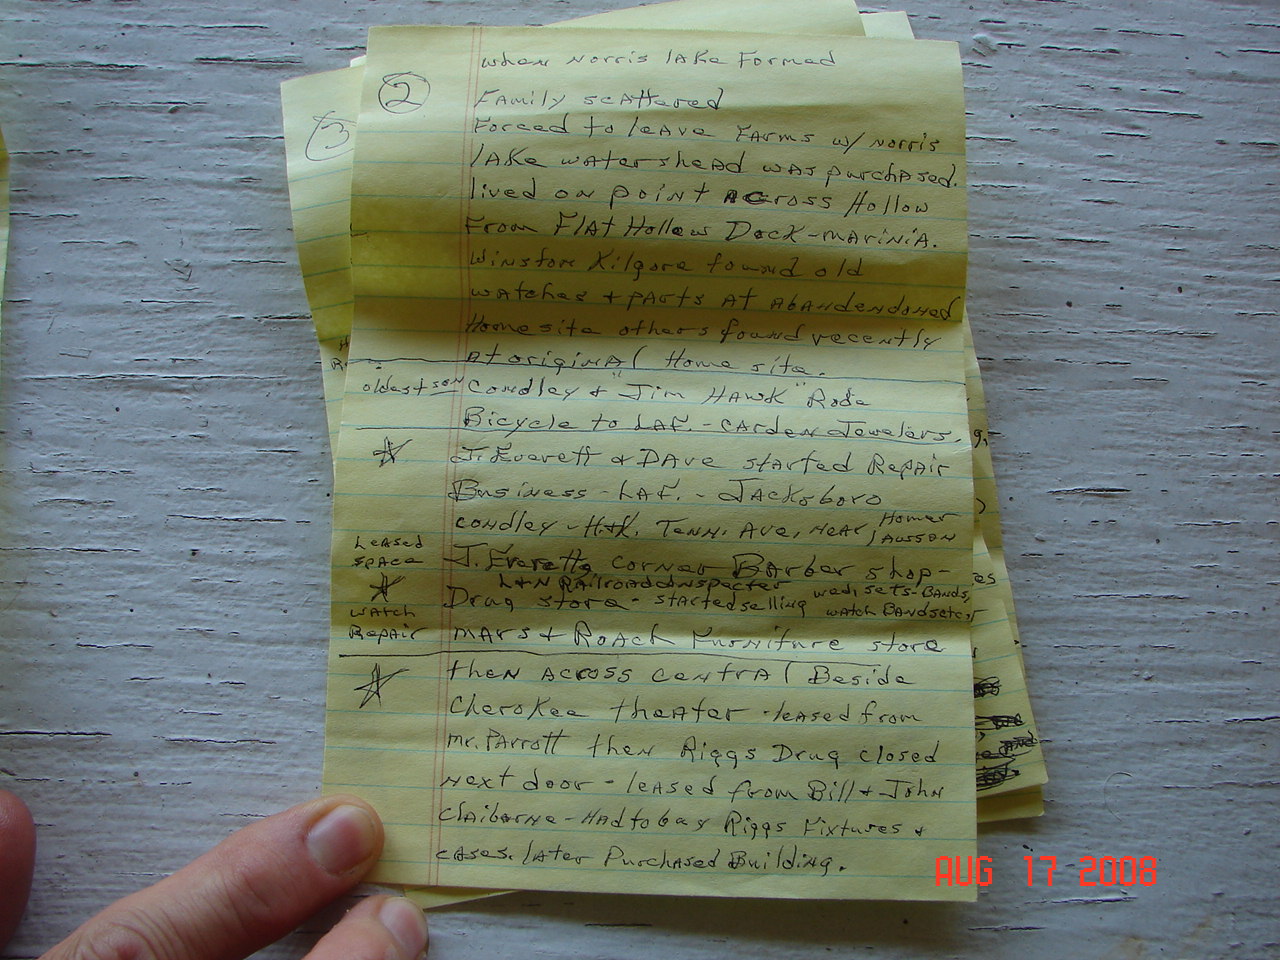 when Norris lake Formed
②
Family scattered
Forced to leave Farms w/ Norris
lake watershead was purchased.
lived on point across Hollow
From Flat Hollow Dock-marinia.
Winston Kilgore found old
watches + parts at abandendoned
Homesite others found recently
at original Home site.
oldest son Condley + "Jim Hawk" Rode
Bicycle to LaF. - Carden Jewelers,
☆ J. Everett & Dave started Repair
Business - LaF. - Jacksboro
Condley - Tenn. Ave, near Homer Lawson
Leased space
J. Everetts corner Barber shop -
L+N Railroad Inspecter
☆
Drug store - started selling wed. sets-Bands, watch Bands etc,
watch Repair
mars + Roach Furniture store
☆
then across central Beside
Cherokee theater - leased from
mr. Parrott then Riggs Drug closed
next door - leased from Bill + John
Claiborne - Had to buy Riggs Fixtures +
cases. later Purchased Building.
3
AUG 17 2008